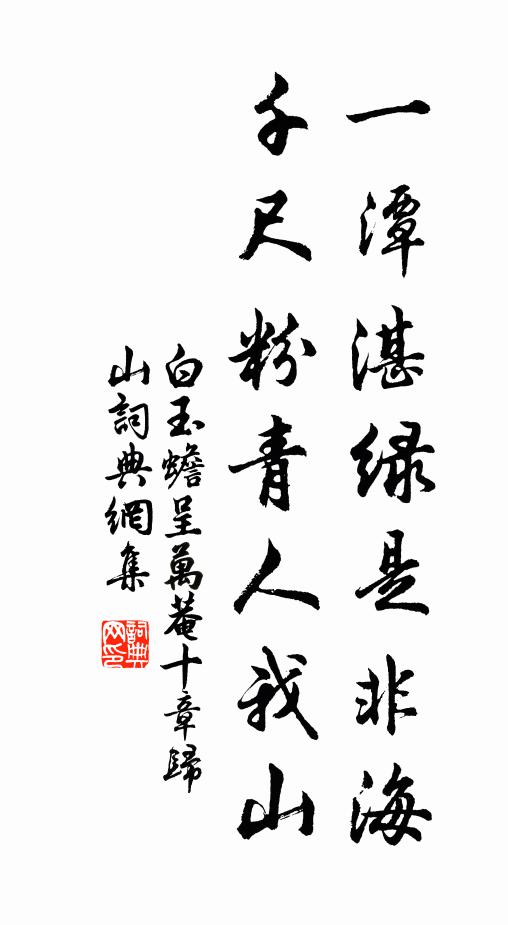 一潭湛绿是非海
千尺粉青人我山
白玉蟾呈萬菴十章歸
山詞典網集
詞典网印